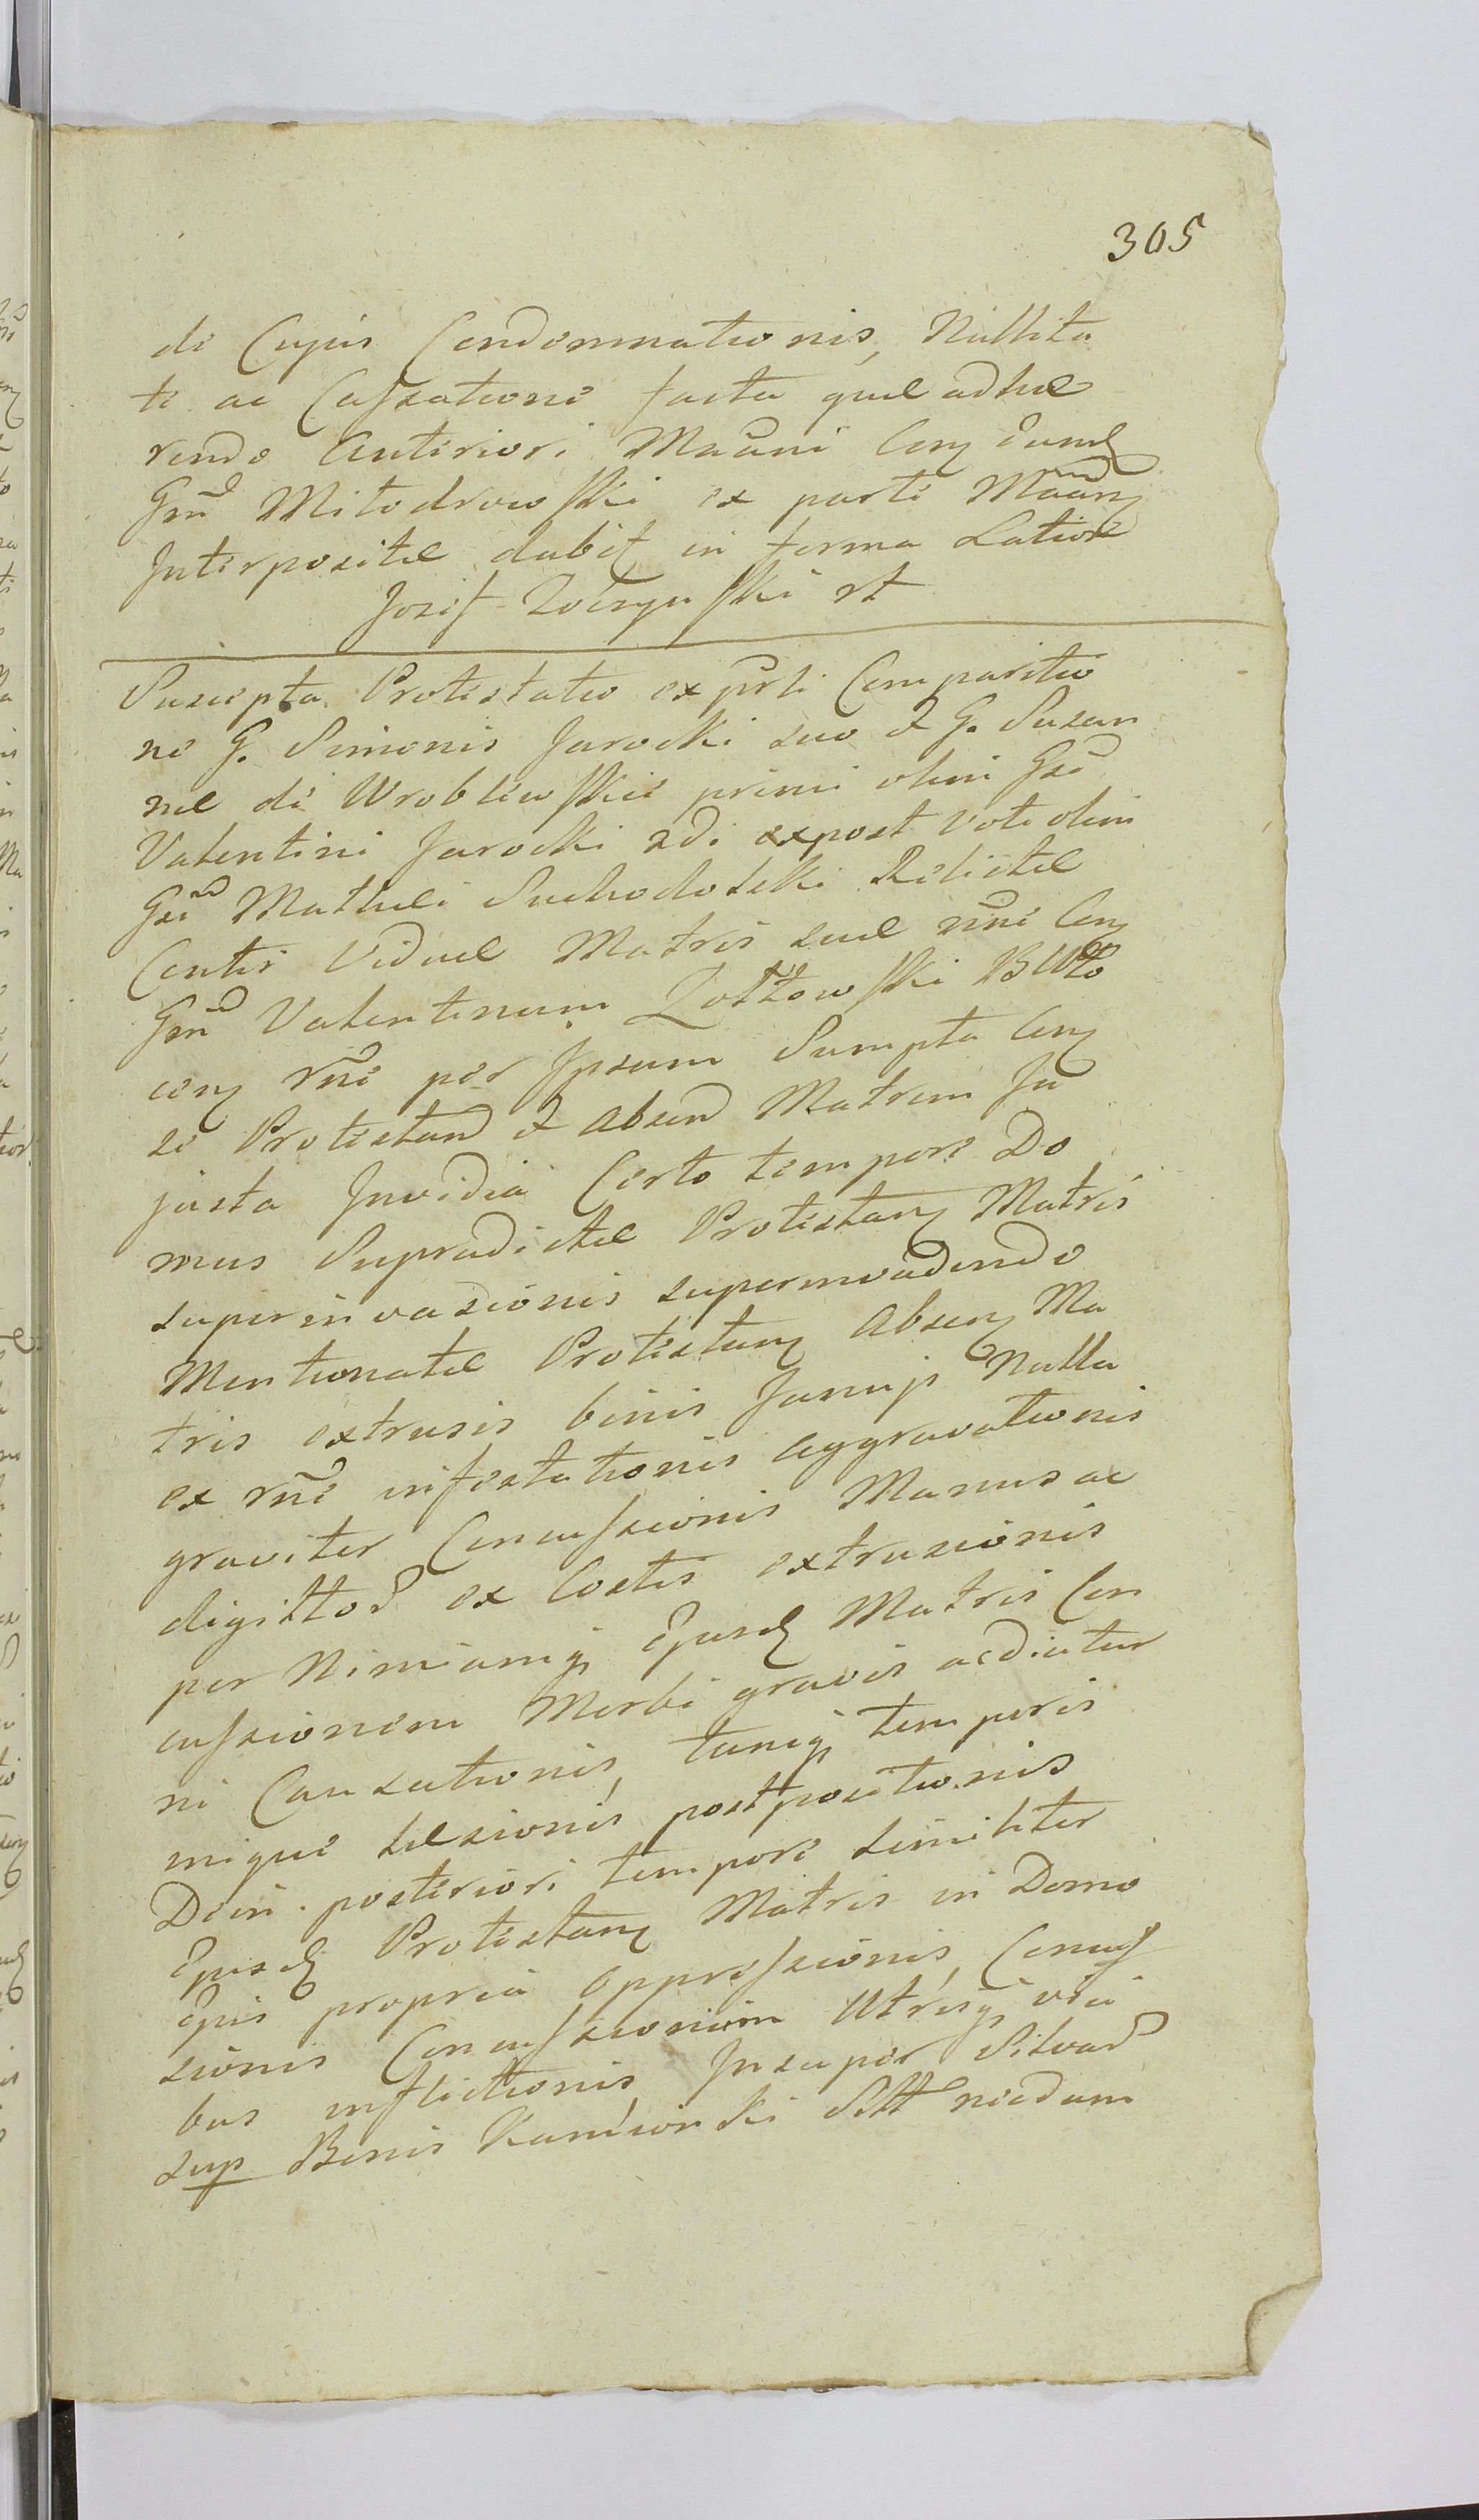 305
de Cujus Condemnationis, Nullita
te ac Cassatione facta quæ adhæ
rendo Anteriori Maãni Con eund
Gñ Miłodrowski ex parte Maãn
Interpositæ dabit in forma Latiore
Jozef
Suscepta Protestatio ex Comparitio
ne G. Simonis Jarocki suo & G. Susan
næ de Wroblewskie primi olim Gsi
Valentini Jarocki 2di expost Voti olim
Gsi Mathæi Suchodolski Relictæ
Conter Viduæ Matris suæ nõie Con
Gñ Valentinum Zołtowski BWło
con rñe per Ipsum Sumpta Con
se Protestan & absen Matrem In
justa Invidia Certo tempore Do
mus Supradictæ Protestan Matris
superinvasionis superinvadendo
Mentionatæ Protestan Absen Ma
tris extrusis binis Januis Nulla
ex rñe infestationis aggravationis
graviter Concussionis Manus ac
digittor ex Costis extrusionis
per Nimiamq Ejusd Matris Con
cussionem Morbi gravis ac diutur
ni Causationis, tamq temporis
mique Læsionis postpositionis
Dein posteriori tempore similiter
Ejusd Protestan Matris in Domo
Ejus propria Oppressionis, Concus
sionis Concussionum Utrisq vici
bus inflictionis, Insuper Silvar
sup Bonis Kamionki Sitt necdum